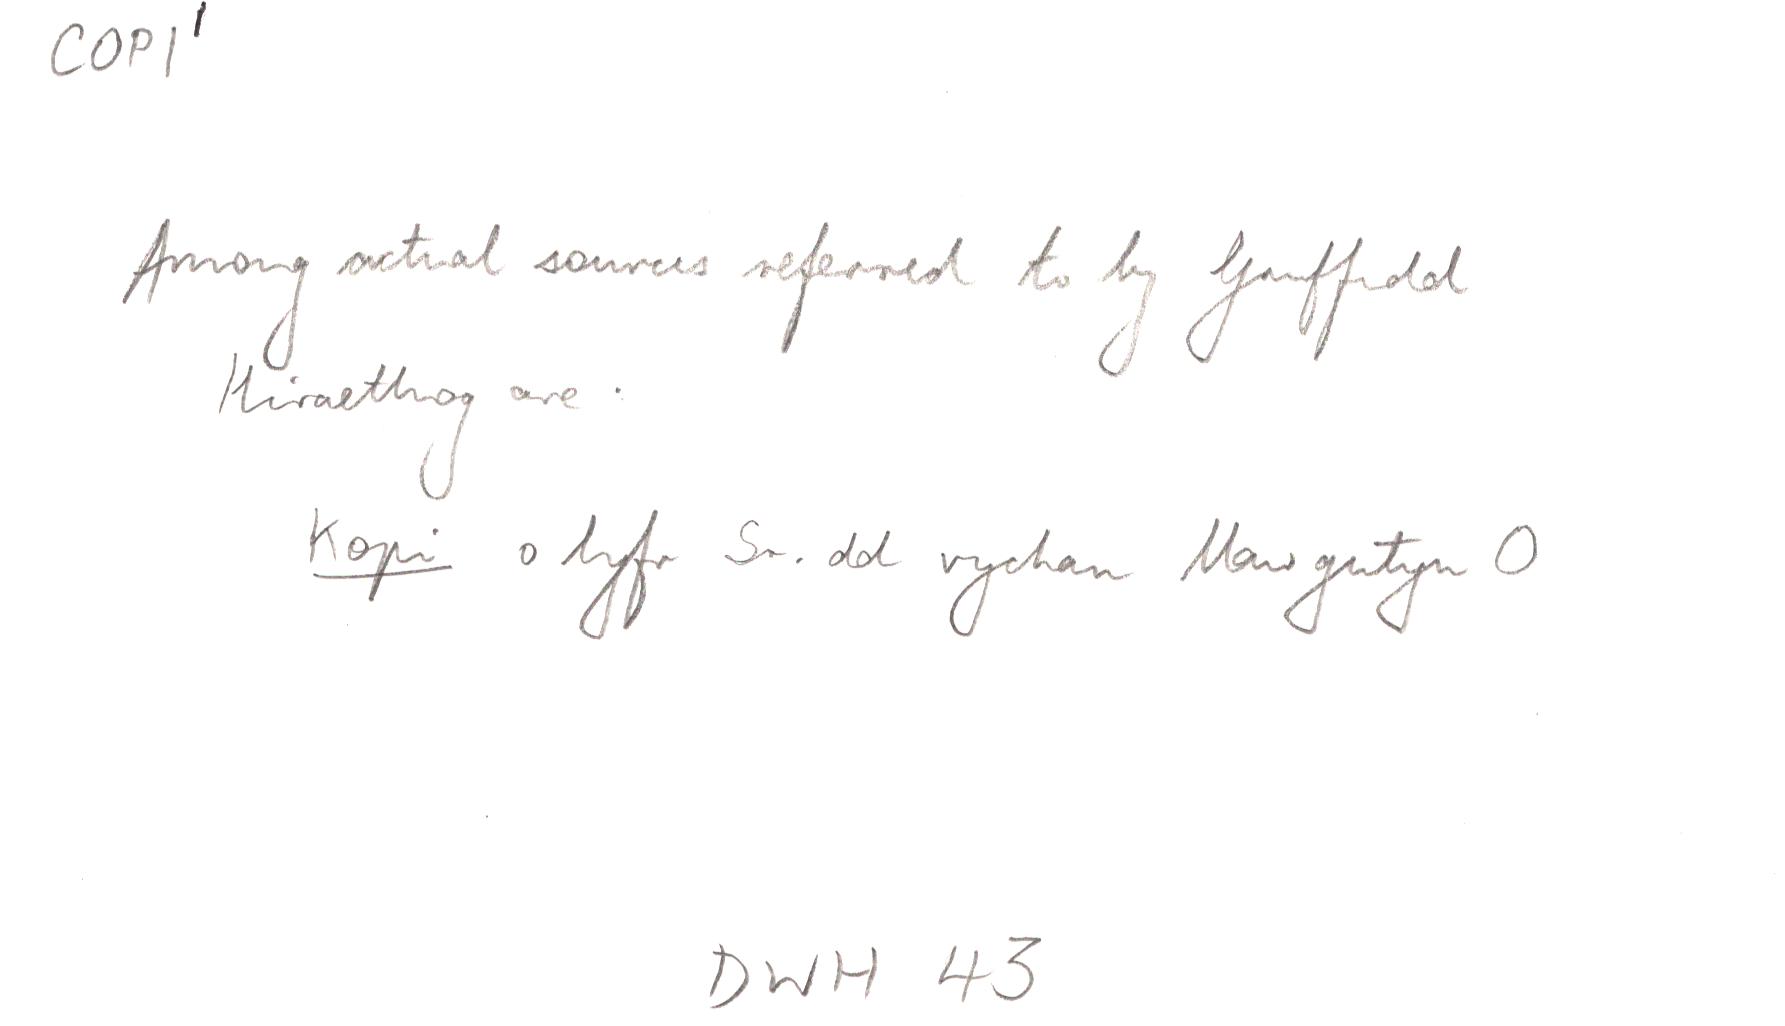 COPI'
Among actual sources referred to by Gruffudd
Hiraethog are :
Kopi o lyfr Sr. dd vychan Maw gutyn O
DWH 43